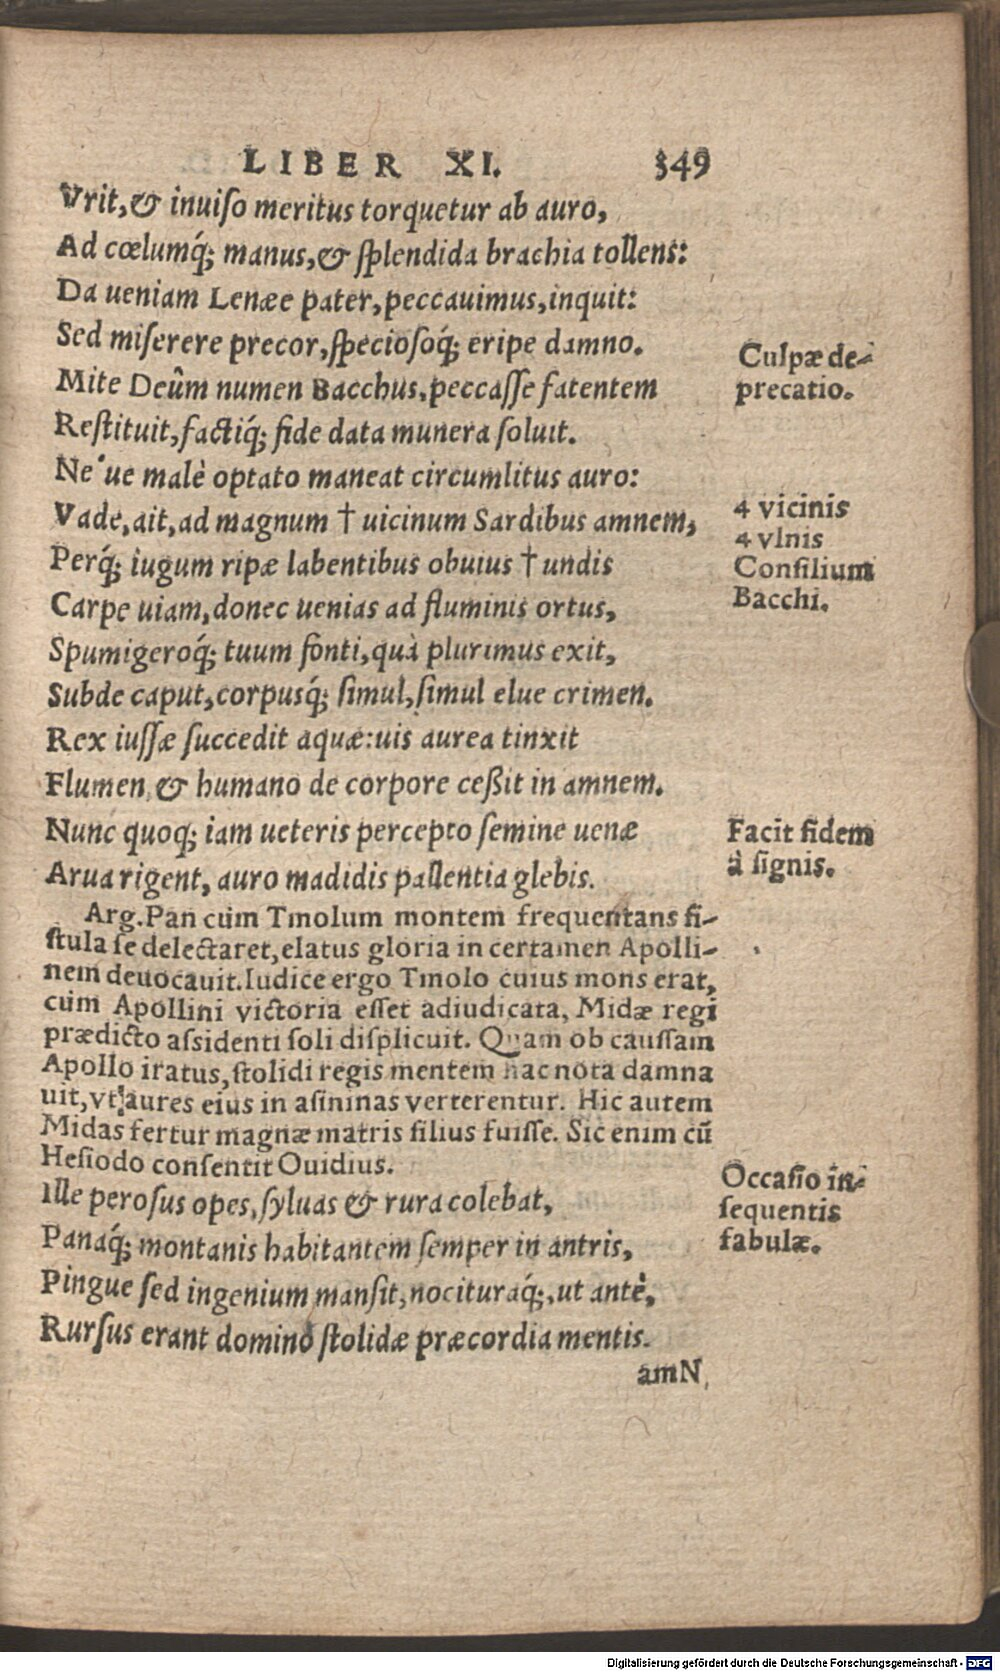 LIBER XI. 349
Vrit, & inuiſo meritus torquetur ab auro,
Ad cœlumq́; manus, & ſplendida brachia tollens:
Da ueniam Lenæe pater, peccauimus, inquit:
Sed miſerere precor, ſpecioſoq́; eripe damno.
Culpæ de-
precatio.
Mite Deûm numen Bacchus, peccaſſe fatentem
Reſtituit, factiq́; fide data munera ſoluit.
Ne'ue malè optato maneat circumlitus auro:
Vade, ait, ad magnum † uicinum Sardibus amnem,
Perq́; iugum ripæ labentibus obuius † undis
4 vicinis
4 vlnis
Conſilium
Bacchi.
Carpe uiam, donec uenias ad fluminis ortus,
Spumigeroq́; tuum fonti, quà plurimus exit,
Subde caput, corpusq́; ſimul, ſimul elue crimen.
Rex iuſſæ ſuccedit aquæ: uis aurea tinxit
Flumen, & humano de corpore ceßit in amnem.
Nunc quoq; iam ueteris percepto ſemine uenæ
Arua rigent, auro madidis pallentia glebis.
Facit fidem
à ſignis.
Arg. Pan cùm Tmolum montem frequentans fi-
ſtula ſe delectaret, elatus gloria in certamen Apolli-
nem deuocauit. Iudice ergo Tmolo cuius mons erat,
cùm Apollini victoria eſſet adiudicata, Midæ regi
prædicto aſsidenti ſoli diſplicuit. Quam ob cauſſam
Apollo iratus, ſtolidi regis mentem hac nota damna
uit, vt aures eius in aſininas verterentur. Hic autem
Midas fertur magnæ matris filius fuiſſe. Sic enim cũ
Heſiodo conſentit Ouidius.
Ille peroſus opes, ſyluas & rura colebat,
Panaq́; montanis habitantem ſemper in antris,
Occaſio in-
ſequentis
fabulæ.
Pingue ſed ingenium manſit, nocituraq́;, ut antè,
Rurſus erant domino ſtolidæ præcordia mentis.
amN
Digitalisierung gefördert durch die Deutsche Forschungsgemeinschaft - DFG